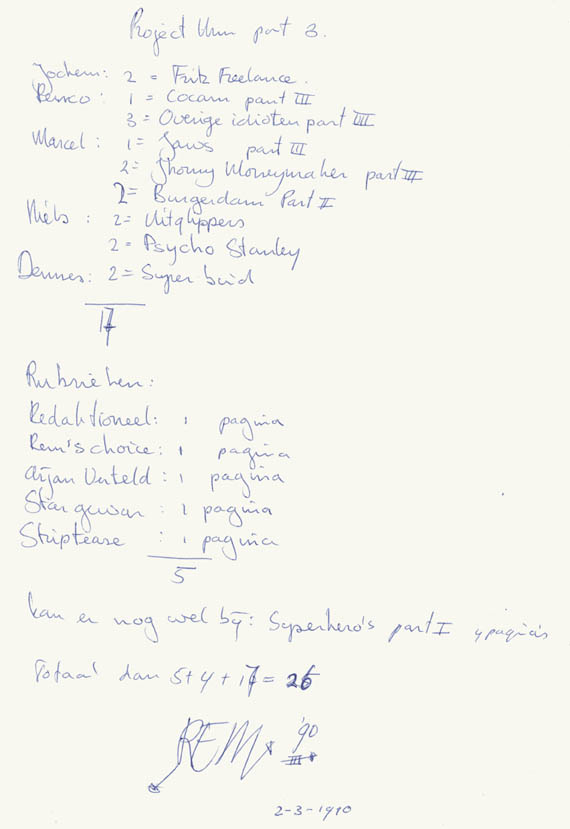 Project Umm part 3.
Jochem: 2 = Fritz Freelance.
Remco: 1 = Cocain part III
3 = Overige idioten part III
Marcel: 1 = Jaws part III
2 = Jhonny Moneymaker part III
2 = Burgerdam Part II
Niels: 2 = Uitglippers
2 = Psycho Stanley
Dennes: 2 = Super bird
17
Rubrieken:
Redaktioneel: 1 pagina
Rem's choice: 1 pagina
Arjan Verteld: 1 pagina
Star gewar: 1 pagina
Striptease: 1 pagina
5
kan er nog wel bij: Superhero's part I 4 pagina's
Totaal dan 5+4+17 = 26
REM '90
III
2-3-1990